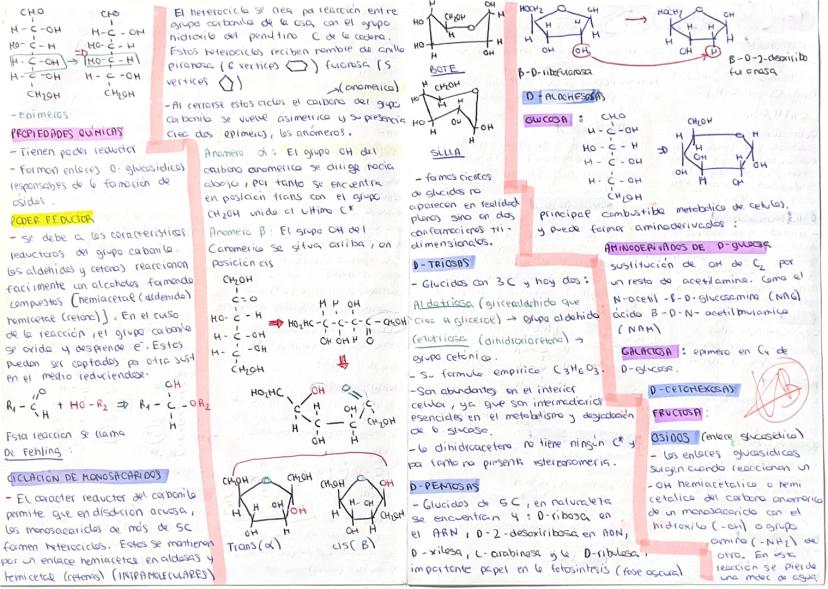 CHO CHO
H-C-OH H-C-OH
HO-C-H HO-C-H
H-C-OH HO-C-H
H-C-OH H-C-OH
CH₂OH CH₂OH
- Epímeros
PROPIEDADES QUÍMICAS
- Tienen poder reductor
- Forman enlaces O-glucosídicos
responsables de la formación de
ósidos.
PODER REDUCTOR
- se debe a las características
reductoras del grupo carbonilo.
los aldehídos y cetonas reaccionan
facilmente con alcoholes formando
compuestos [hemiacetal (aldehído)
hemicetal (cetona)]. En el curso
de la reacción, el grupo carbonilo
se oxida y desprende e⁻. Estos
pueden ser captados por otra sust
en el medio reduciéndose.
R₁-C + HO-R₂ ⇒ R₁-C-OR₂
Esta reacción se llama
De Fehling:
CICLACIÓN DE MONOSACARIDOS
- El caracter reductor del carbonilo
permite que en disolución acuosa,
los monosacáridos de más de 5C
formen heterociclos. Estos se mantienen
por un enlace hemiacetal en aldosas y
hemicetal (cetonas) (INTRAMOLECULARES)
El heterociclo se crea por reacción entre
grupo carbonilo de la osa, con el grupo
hidroxilo del penúltimo C de la cadena.
Estos heterociclos reciben nombre de anillo
piranosa (6 vertices) furanosa (5
vertices)
(anomerico)
- Al cerrarse estos ciclos el carbono del grupo
carbonilo se vuelve asimetrico y su presencia
crea dos epímeros, los anómeros.
Anomero α: El grupo OH del
carbono anomérico se dirige hacia
abajo, por tanto se encuentra
en posición trans con el grupo
CH₂OH unido al ultimo C*
Anomero β: El grupo OH del
C anomerico se situa arriba, en
posición cis
CH₂OH
C=O
HO-C-H
H-C-OH
H-C-OH
CH₂OH
Trans(α) cis(β)
BOTE
SILLA
- formas cíclicas
de glúcidos no
aparecen en realidad
planas sino en dos
conformaciones tri-
dimensionales.
D-TRIOSAS
- Glúcidos con 3C y hay dos:
Aldotriosa (gliceraldehído que
crea a glicerol) → grupo aldehído
Cetotriosa (dihidroxiacetona) →
grupo cetónico.
- Su formula empírica C₃H₆O₃.
- Son abundantes en el interior
celular, ya que son intermediarios
esenciales en el metabolismo y degradación
de la glucosa.
- la dihidroxiacetona no tiene ningún C* y
por tanto no presenta estereoisomería.
D-PENTOSAS
- Glúcidos de 5C, en naturaleza
se encuentran 4: D-ribosa, en
el ARN, D-2-desoxiribosa en ADN,
D-xilosa, L-arabinosa y la D-ribulosa,
importante papel en la fotosíntesis (fase oscura)
β-D-ribofuranosa
β-D-2-desoxirribo
furanosa
D-ALDOHEXOSAS
GLUCOSA:
CHO
H-C-OH
HO-C-H
H-C-OH
H-C-OH
CH₂OH
principal combustible metabólico de células.
y puede formar aminoderivados:
AMINODERIVADOS DE D-glucosa
sustitución de OH de C₂ por
un resto de acetilamina. Como el
N-acetil-β-D-glucosamina (NAG)
ácido β-D-N-acetilmuramico
(NAM)
GALACTOSA: epímero en C₄ de
D-glucosa.
D-CETOHEXOSAS
FRUCTOSA:
ÓSIDOS (enlace glucosídico)
- los enlaces glucosídicos
surgen cuando reaccionan un
-OH hemiacetalico o hemi
cetalico del carbono anomérico
de un monosacárido con el
hidroxilo (-OH) o grupo
amino (-NH₂) de
otro. En esta
reacción se pierde
una molec de agua.